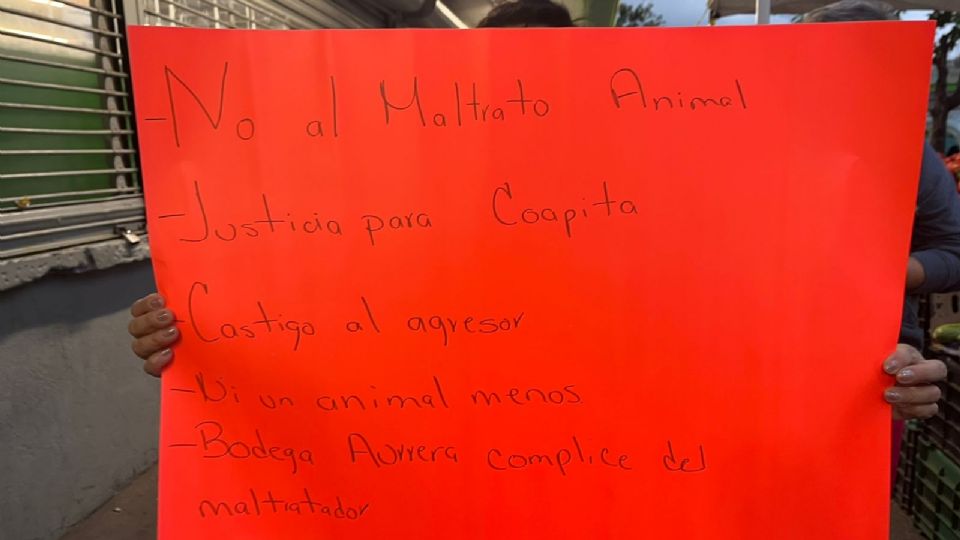 -No al Maltrato Animal
-Justicia para Coapita
-Castigo al agresor
-Ni un animal menos
-Bodega Aurrera complice del
maltratador